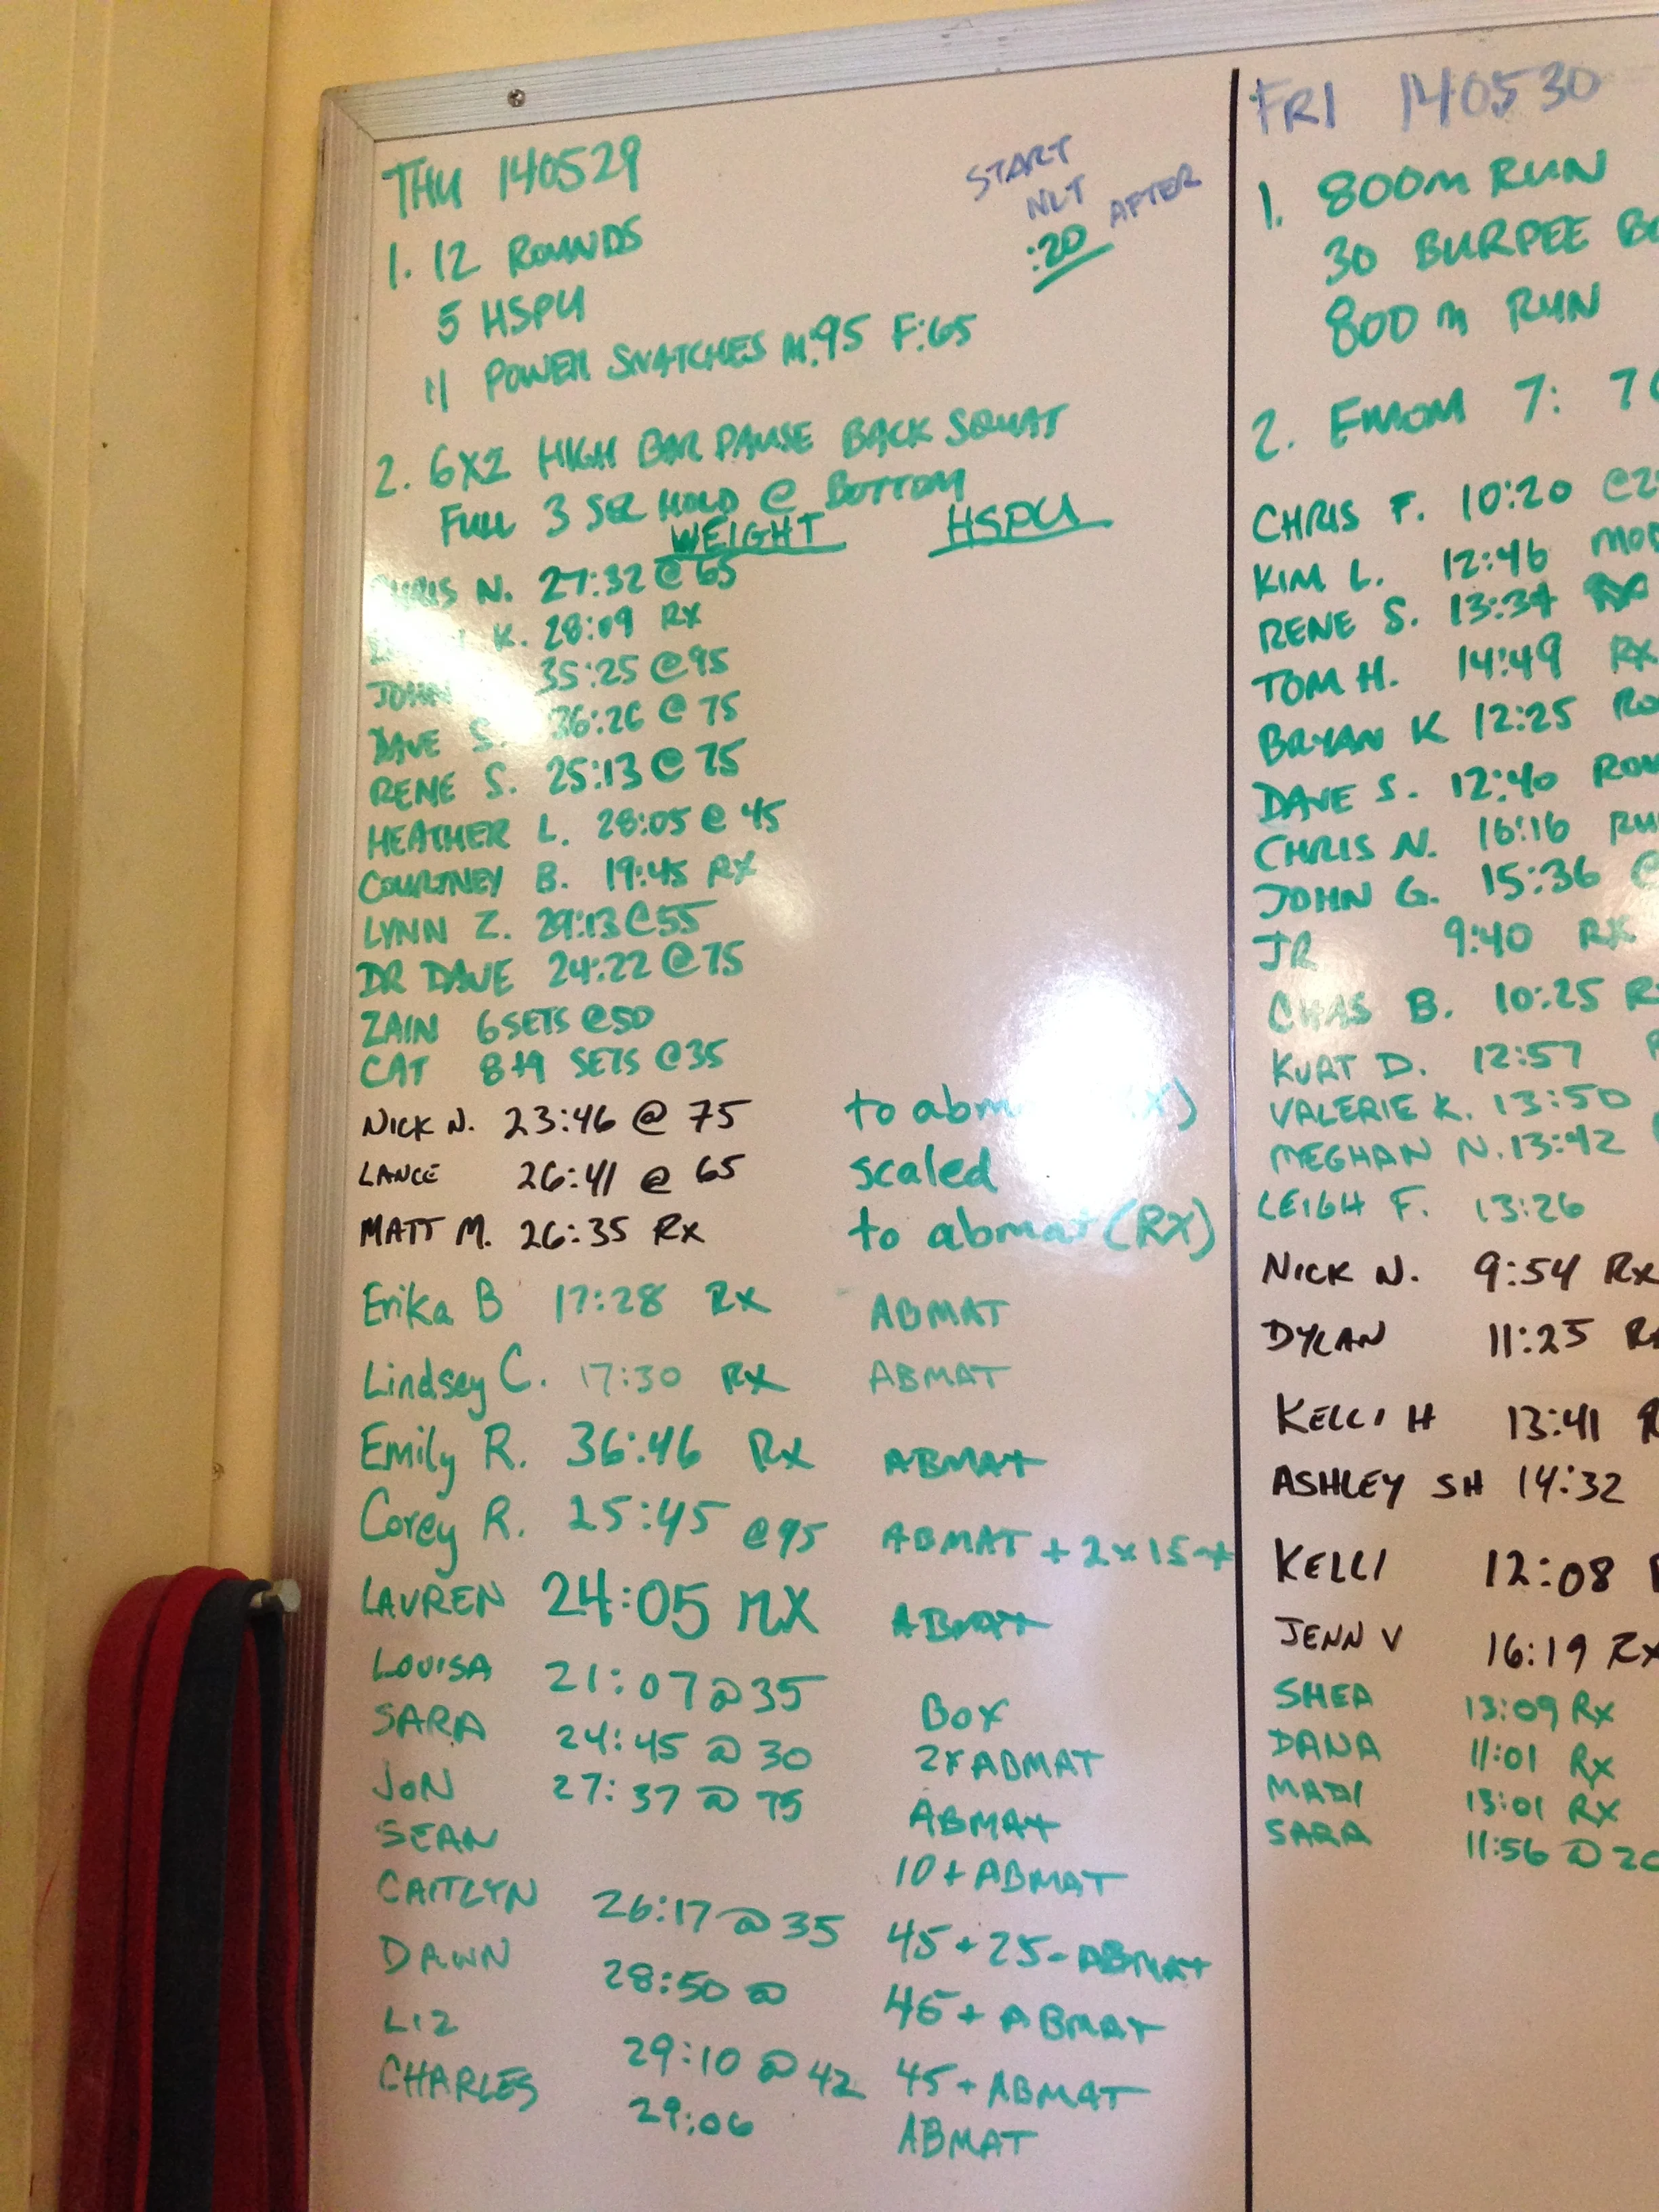 THU 140529
START
NLT
:20 AFTER
1. 12 ROUNDS
5 HSPU
11 POWER SNATCHES M:95 F:65
2. 6X2 HIGH BAR PAUSE BACK SQUAT
FULL 3 SEC HOLD @ BOTTOM
WEIGHT HSPU
CHRIS N. 27:32 @ 65
K. 28:09 RX
JOHN 35:25 @ 95
DAVE S. 36:26 @ 75
RENE S. 25:13 @ 75
HEATHER L. 28:05 @ 45
COURTNEY B. 19:45 RX
LYNN Z. 29:13 @ 55
DR DAVE 24:22 @ 75
ZAIN 6 SETS @50
CAT 8+9 SETS @35
NICK N. 23:46 @ 75 to
LANCE 26:41 @ 65 scaled
MATT M. 26:35 Rx to abmat (RX)
Erika B 17:28 Rx ABMAT
Lindsey C. 17:30 Rx ABMAT
Emily R. 36:46 Rx ABMAT
Corey R. 25:45 @95 ABMAT + 2x15
LAUREN 24:05 RX ABMAT
LOUISA 21:07 @ 35 BOX
SARA 24:45 @ 30 2x ABMAT
JON 27:37 @ 75 ABMAT
SEAN 10 + ABMAT
CAITLYN 26:17 @ 35 45 + 25 - ABMAT
DAWN 28:50 @ 45 + ABMAT
LIZ 29:10 @ 42 45 + ABMAT
CHARLES 29:06 ABMAT
FRI 140530
1. 800m RUN
30 BURPEE
800 m RUN
2. EMOM 7: 7
CHRIS F. 10:20
KIM L. 12:46
RENE S. 13:34
TOM H. 14:49 RX
BRYAN K 12:25
DAVE S. 12:40
CHRIS N. 16:16
JOHN G. 15:36 @
JR 9:40 RX
CHAS B. 10:25
KURT D. 12:57
VALERIE K. 13:50
MEGHAN N. 13:42
LEIGH F. 13:26
NICK N. 9:54 Rx
DYLAN 11:25
KELLI H 13:41
ASHLEY SH 14:32
KELLI 12:08
JENN V 16:19 Rx
SHEA 13:09 Rx
DANA 11:01 Rx
MADI 13:01 Rx
SARA 11:56 @ 20